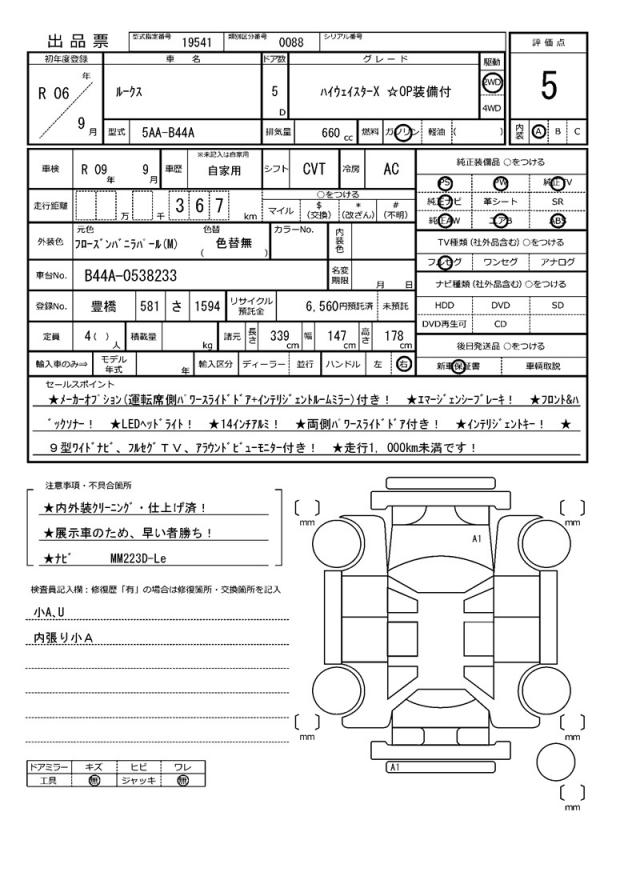 出品票 型式指定番号 19541 類別区分番号 0088 シリアル番号
初年度登録 車名 ドア数 グレード 駆動 評価点
R 06 年 9 月 ルークス 5 D ハイウェイスターX ☆OP装備付 2WD 4WD 5
型式 5AA-B44A 排気量 660 cc 燃料 ガソリン 軽油 ( ) 内装 A B C
車検 R 09 年 9 月 車歴 ※未記入は自家用 自家用 シフト CVT 冷房 AC 純正装備品 ○をつける
PS PW 純正TV
走行距離 万 千 3 6 7 km ○をつける マイル $ (交換) * (改ざん) # (不明) 純正ナビ 革シート SR
純正AW エアB ABS
外装色 元色 フローズンバニラパール(M) 色替 ( 色替無 ) カラーNo. 内装色 TV種類 (社外品含む) ○をつける
フルセグ ワンセグ アナログ
車台No. B44A-0538233 名変期限 月 日 ナビ種類 (社外品含む) ○をつける
登録No. 豊橋 581 さ 1594 リサイクル預託金 6,560円預託済 未預託 HDD DVD SD
DVD再生可 CD
定員 4( ) 人 積載量 kg 諸元 長さ 339 cm 幅 147 cm 高さ 178 cm 後日発送品 ○をつける
輸入車のみ⇨ モデル年式 年 輸入区分 ディーラー 並行 ハンドル 左 右 新車保証書 車輌取説
セールスポイント
★メーカーオプション(運転席側パワースライドドア+インテリジェントルームミラー)付き! ★エマージェンシーブレーキ! ★フロント&バ
ックソナー! ★LEDヘッドライト! ★14インチアルミ! ★両側パワースライドドア付き! ★インテリジェントキー! ★
9型ワイドナビ、フルセグTV、アラウンドビューモニター付き! ★走行1,000km未満です!
注意事項・不具合箇所
★内外装クリーニング・仕上げ済!
★展示車のため、早い者勝ち!
★ナビ MM223D-Le
検査員記入欄:修復歴「有」の場合は修復箇所・交換箇所を記入
小A、U
内張り小A
ドアミラー キズ ヒビ ワレ
工具 無 ジャッキ 無
[ ] mm [ ] mm
A1
[ ] mm [ ] mm
A1
[ ] mm